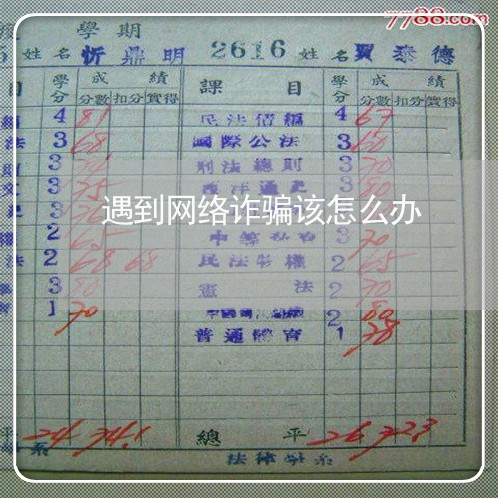 7788.com
學期
姓名 忻鼎明 2616 姓名 賈泰德
目 學分 成績 課目 學分 成績
分數 扣分 實得 分數 扣分 實得
4 81 民法債編 4 67
法 3 68 國際公法 3 60
3 刑法總則 3 70
3 75 西洋通史 3 80
遇到网络诈骗该怎么办
2 65 3 70
法 2 68 68 民法物權 2 65
3 80 憲法 2 70
1 70 2 80
普通體育 1 78
平 24 74.1 總平 26 72.3
系 法律學系